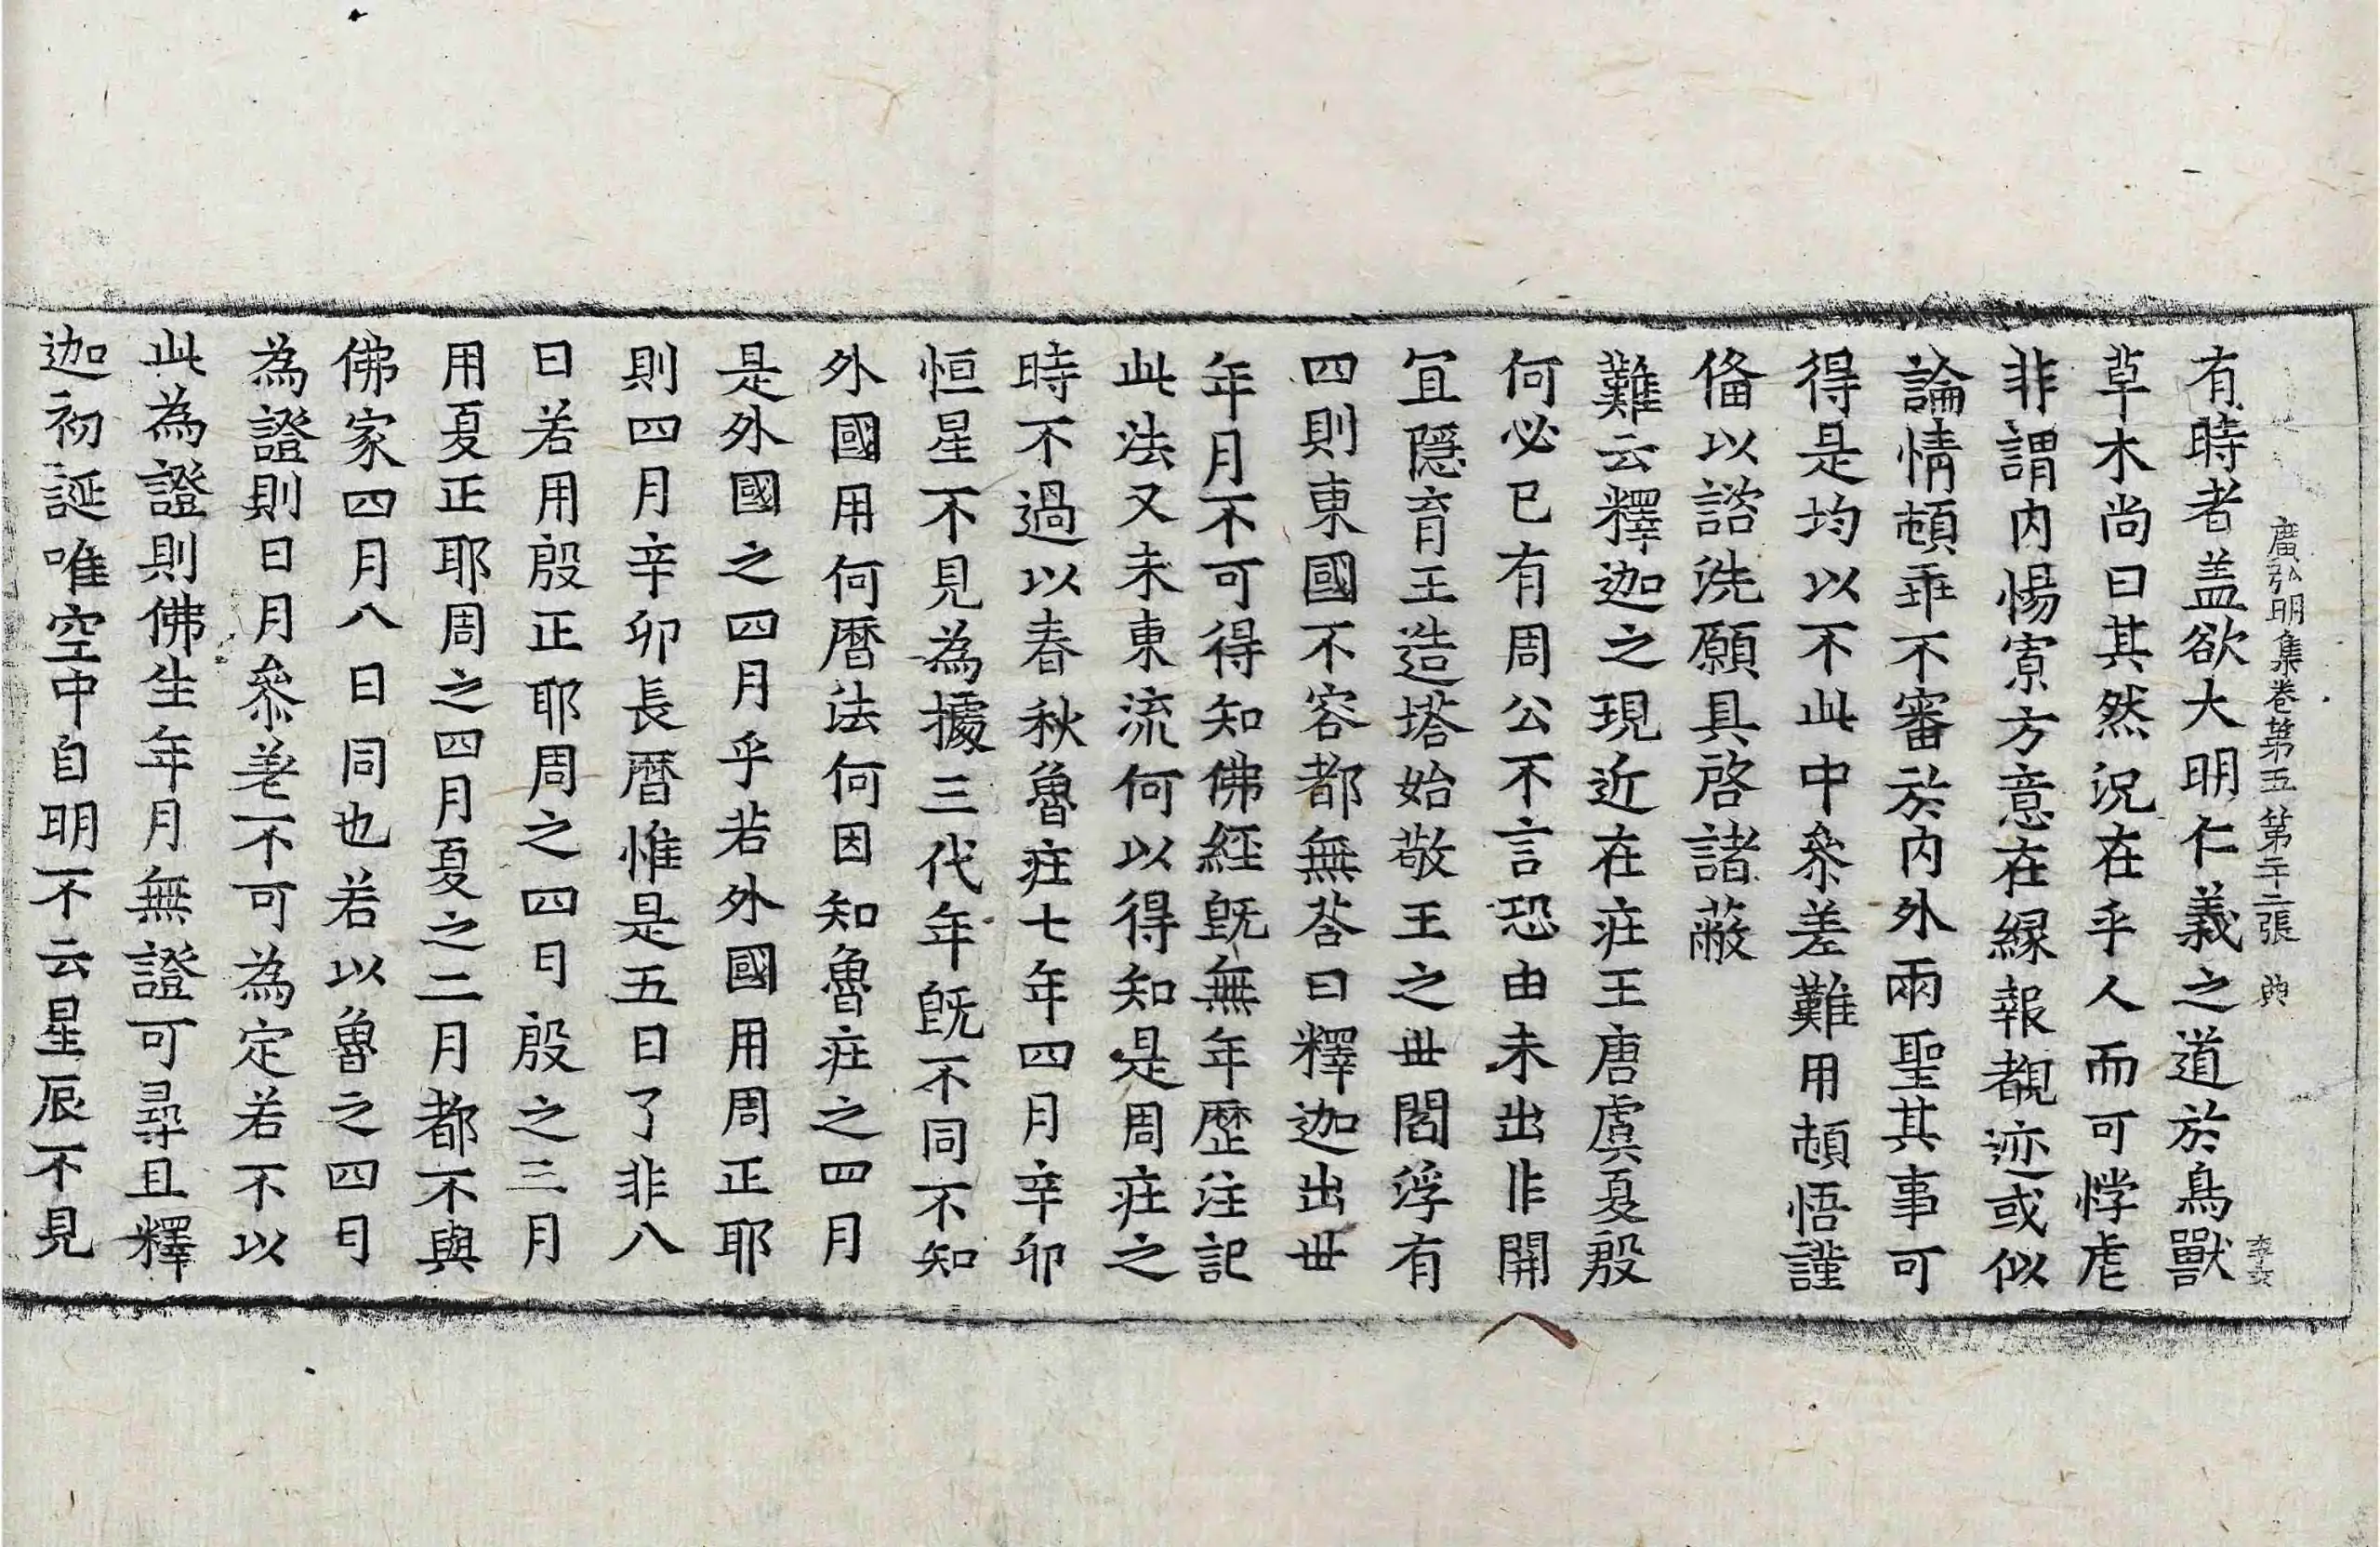 廣弘明集卷第五 第二十二張 典
李奕
有時者盖欲大明仁義之道於鳥獸
草木尚曰其然況在乎人而可悖虐
非謂内惕寡方意在緣報覩迹或似
論情頓乖不審於内外兩聖其事可
得是均以不此中叅差難用頓悟謹
俻以諮洗願具啓諸蔽
難云釋迦之現近在疘王唐虞夏殷
何必已有周公不言恐由未出非開
冝隱育王造塔始敬王之丗閻浮有
四則東國不容都無荅曰釋迦出丗
年月不可得知佛經旣無年歷注記
此法又未東流何以得知是周疘之
時不過以春秋魯疘七年四月辛卯
恒星不見為據三代年旣不同不知
外國用何曆法何因知魯疘之四月
是外國之四月乎若外國用周正耶
則四月辛卯長曆惟是五日了非八
日若用殷正耶周之四月殷之三月
用夏正耶周之四月夏之二月都不與
佛家四月八日同也若以魯之四月
為證則日月叅差不可為定若不以
此為證則佛生年月無證可尋且釋
迦初誕唯空中自明不云星辰不見